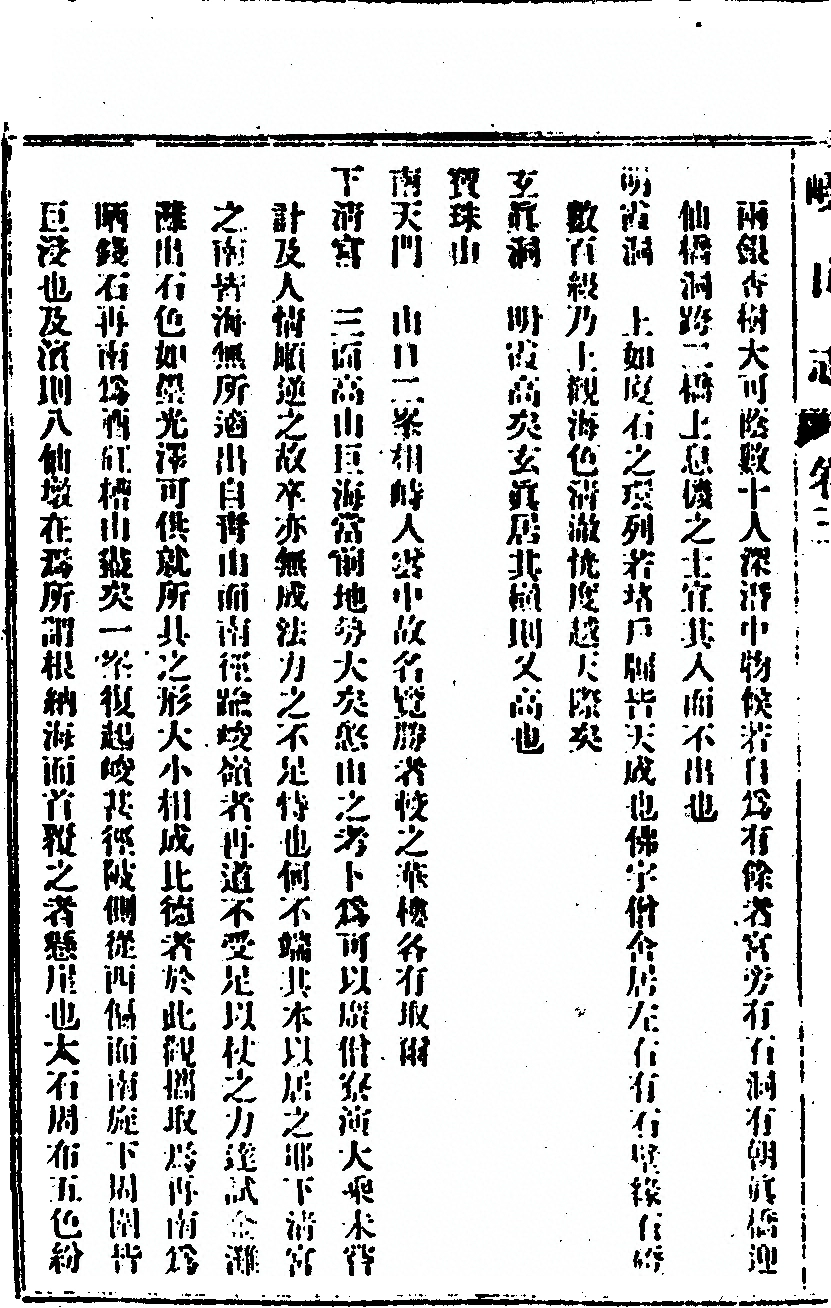 嶗山志 卷三
兩銀杏樹大可陰數十人深澗中物候若自爲有餘者宮旁有石洞有朝眞橋迎
仙橋洞跨二橋上息機之士宜其人而不出也
明霞洞 上如度石之環列若垎戶牖皆天成也佛宇僧舍居左右有石壁緣石磴
數百級乃上觀海色清澈恍度越天際矣
玄眞洞 明霞高矣玄眞居其巓則又高也
寶珠山
南天門 山口二峯相峙人雲中故名覽勝者較之華樓各有取爾
下清宮 三面高山巨海當前地勢大矣憨山之考卜爲可以廣僧寮演大乘未嘗
計及人情順逆之故卒亦無成法力之不足恃也何不端其本以居之耶下清宮
之南皆海無所適出自靑山而南徑踰峻嶺者再道不受足以杖之力達試金灘
灘出石色如墨光澤可供就所具之形大小相成比德者於此觀攜取焉再南爲
晒錢石再南爲酒缸槽山盡矣一峯復起峻甚徑陂側從西偏而南旋下周圍皆
巨浸也及濱則八仙墩在焉所謂根納海而首覆之者懸崖也大石周布五色紛